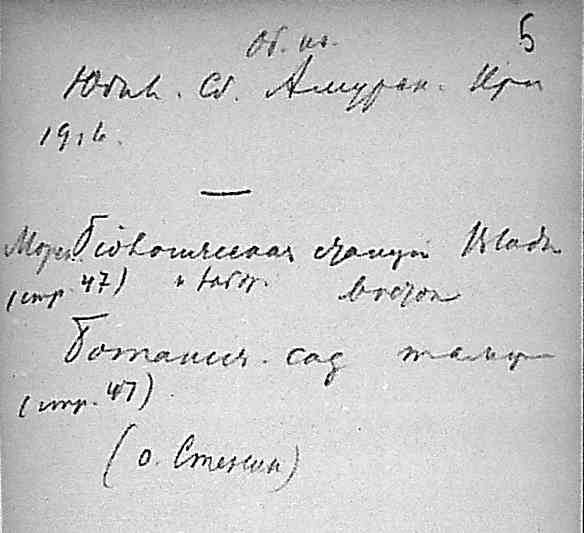 5
Об. из.
Юбил. Сб. Амурск. При
1916.
Морск. Биологическая станция Влади
(стр. 47) и лабор. восток
Ботанич. сад там же
(стр. 47)
(о. Стенин)